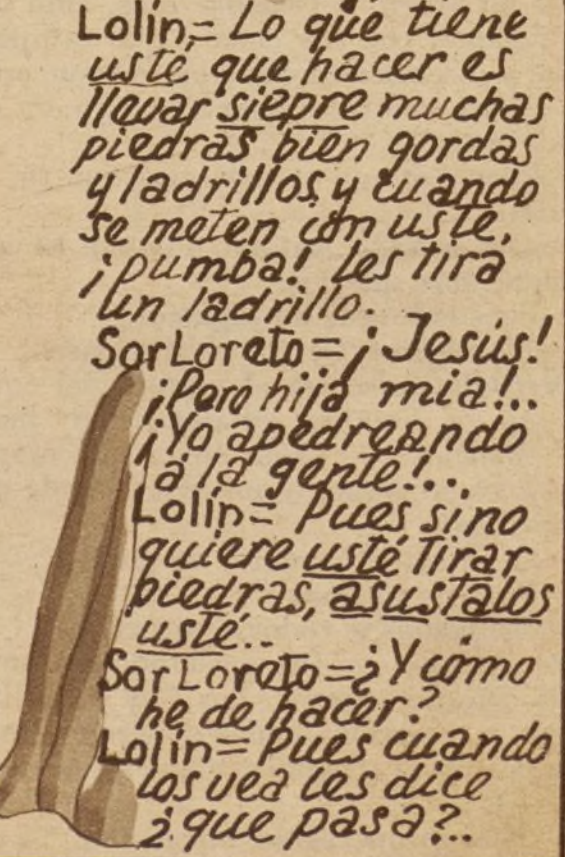 Lolín= Lo que tiene
usté que hacer es
llevar siepre muchas
piedras bien gordas
y ladrillos y cuando
se meten con usté,
¡pumba! les tira
un ladrillo.
Sor Loreto= ¡Jesús!
¡Pero hija mia!..
¡Yo apedreando
á la gente!...
Lolín= Pues sino
quiere usté tirar
piedras, asustalos
usté..
Sor Loreto=¿Y cómo
he de hacer?
Lolín= Pues cuando
los vea les dice
¿que pasa?..